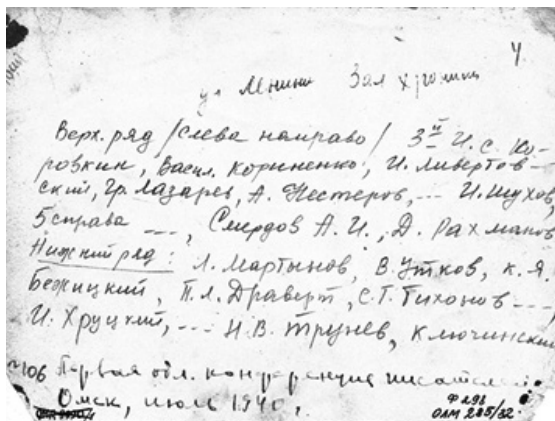 4
ул Ленина Зал хроники
Верх. ряд /слева направо/ 3й И.С. Ко-
ровкин, Васил. Корниенко, И. Ливертов-
ский, Гр. Лазарев, А. Нестеров, --- И. Шухов,
5 справа ---, Смердов А. И., Д. Рахманов
Нижний ряд: Л. Мартынов, В. Утков, К. Я.
Бежицкий, П. Л. Драверт, С. Т. Тихонов ---,
И. Хруцкий, --- Н. В. Трунёв, Ключинский
Первая обл. конференция писателей.
Омск, июль 1940,
ОЛМ 285/32